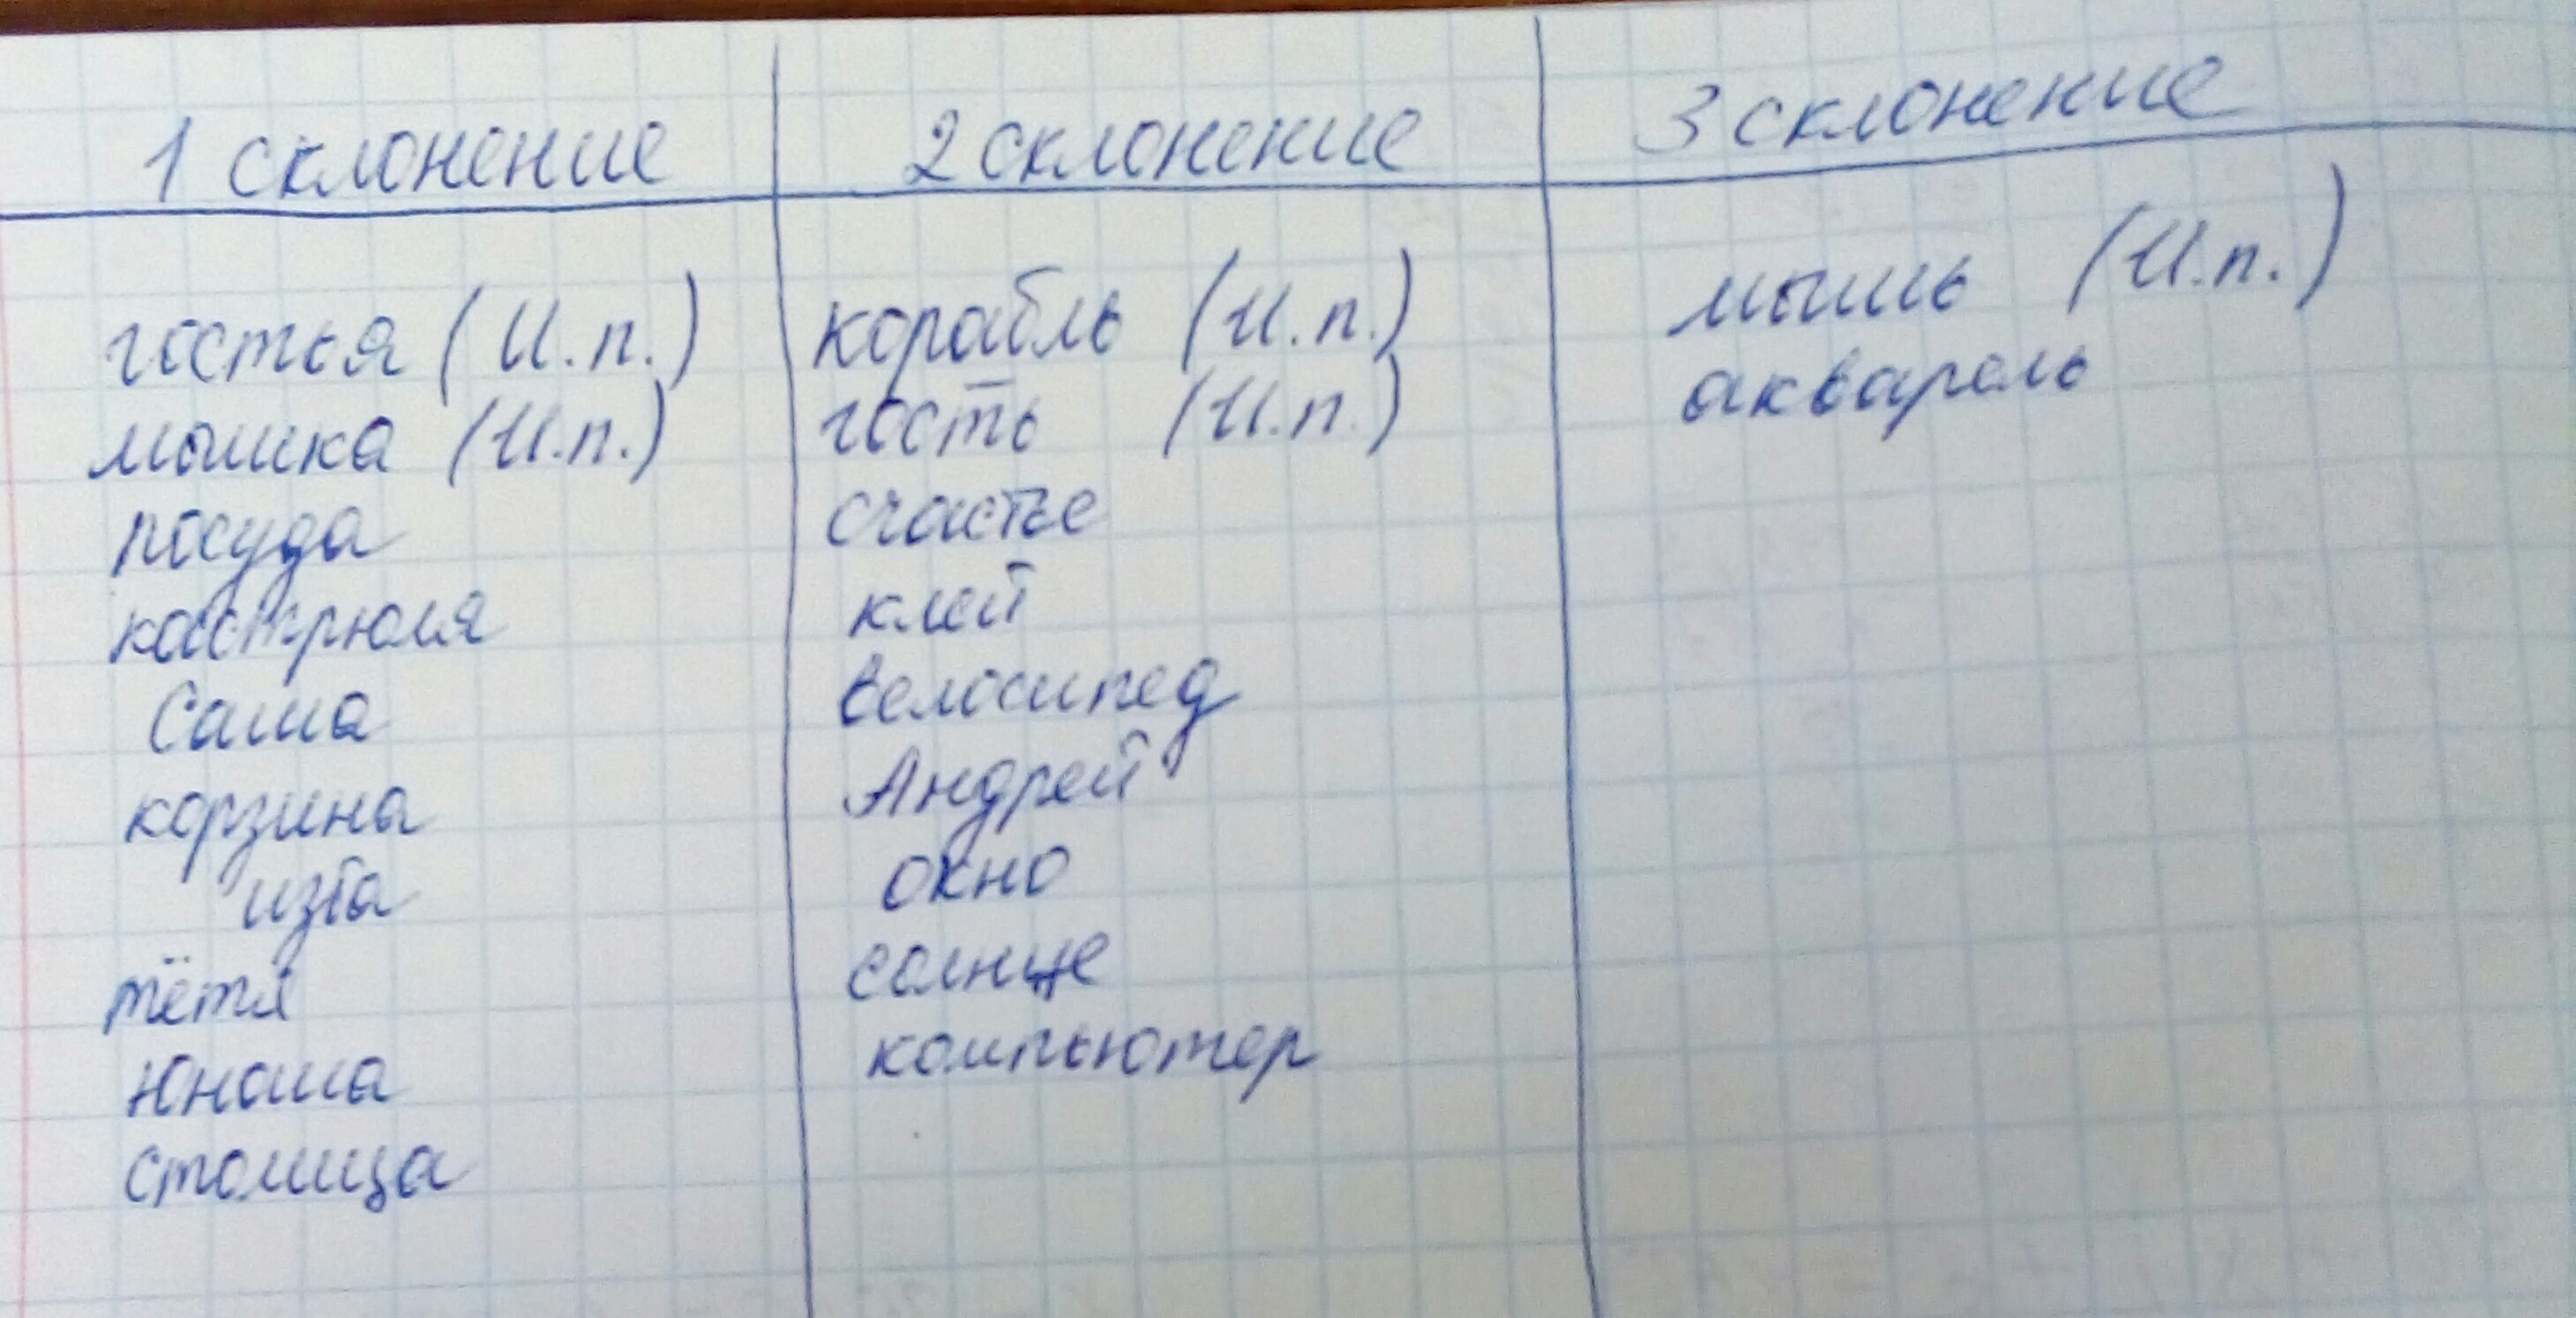 1 склонение
гостья (И.п.)
мышка (И.п.)
посуда
кастрюля
Саша
корзина
изба
тётя
юноша
столица
2 склонение
корабль (И.п.)
гость (И.п.)
счастье
клей
велосипед
Андрей
окно
солнце
компьютер
3 склонение
мышь (И.п.)
акварель